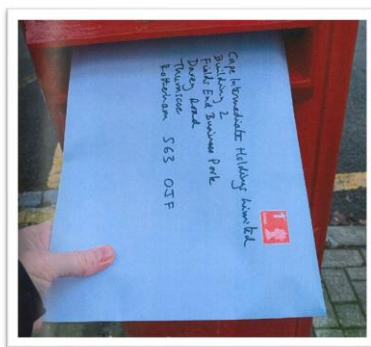 Cape Intermediate Holdings Limited
Building 2
Fields End Business Park
Davey Road
Thurnscoe
Rotherham S63 0JF